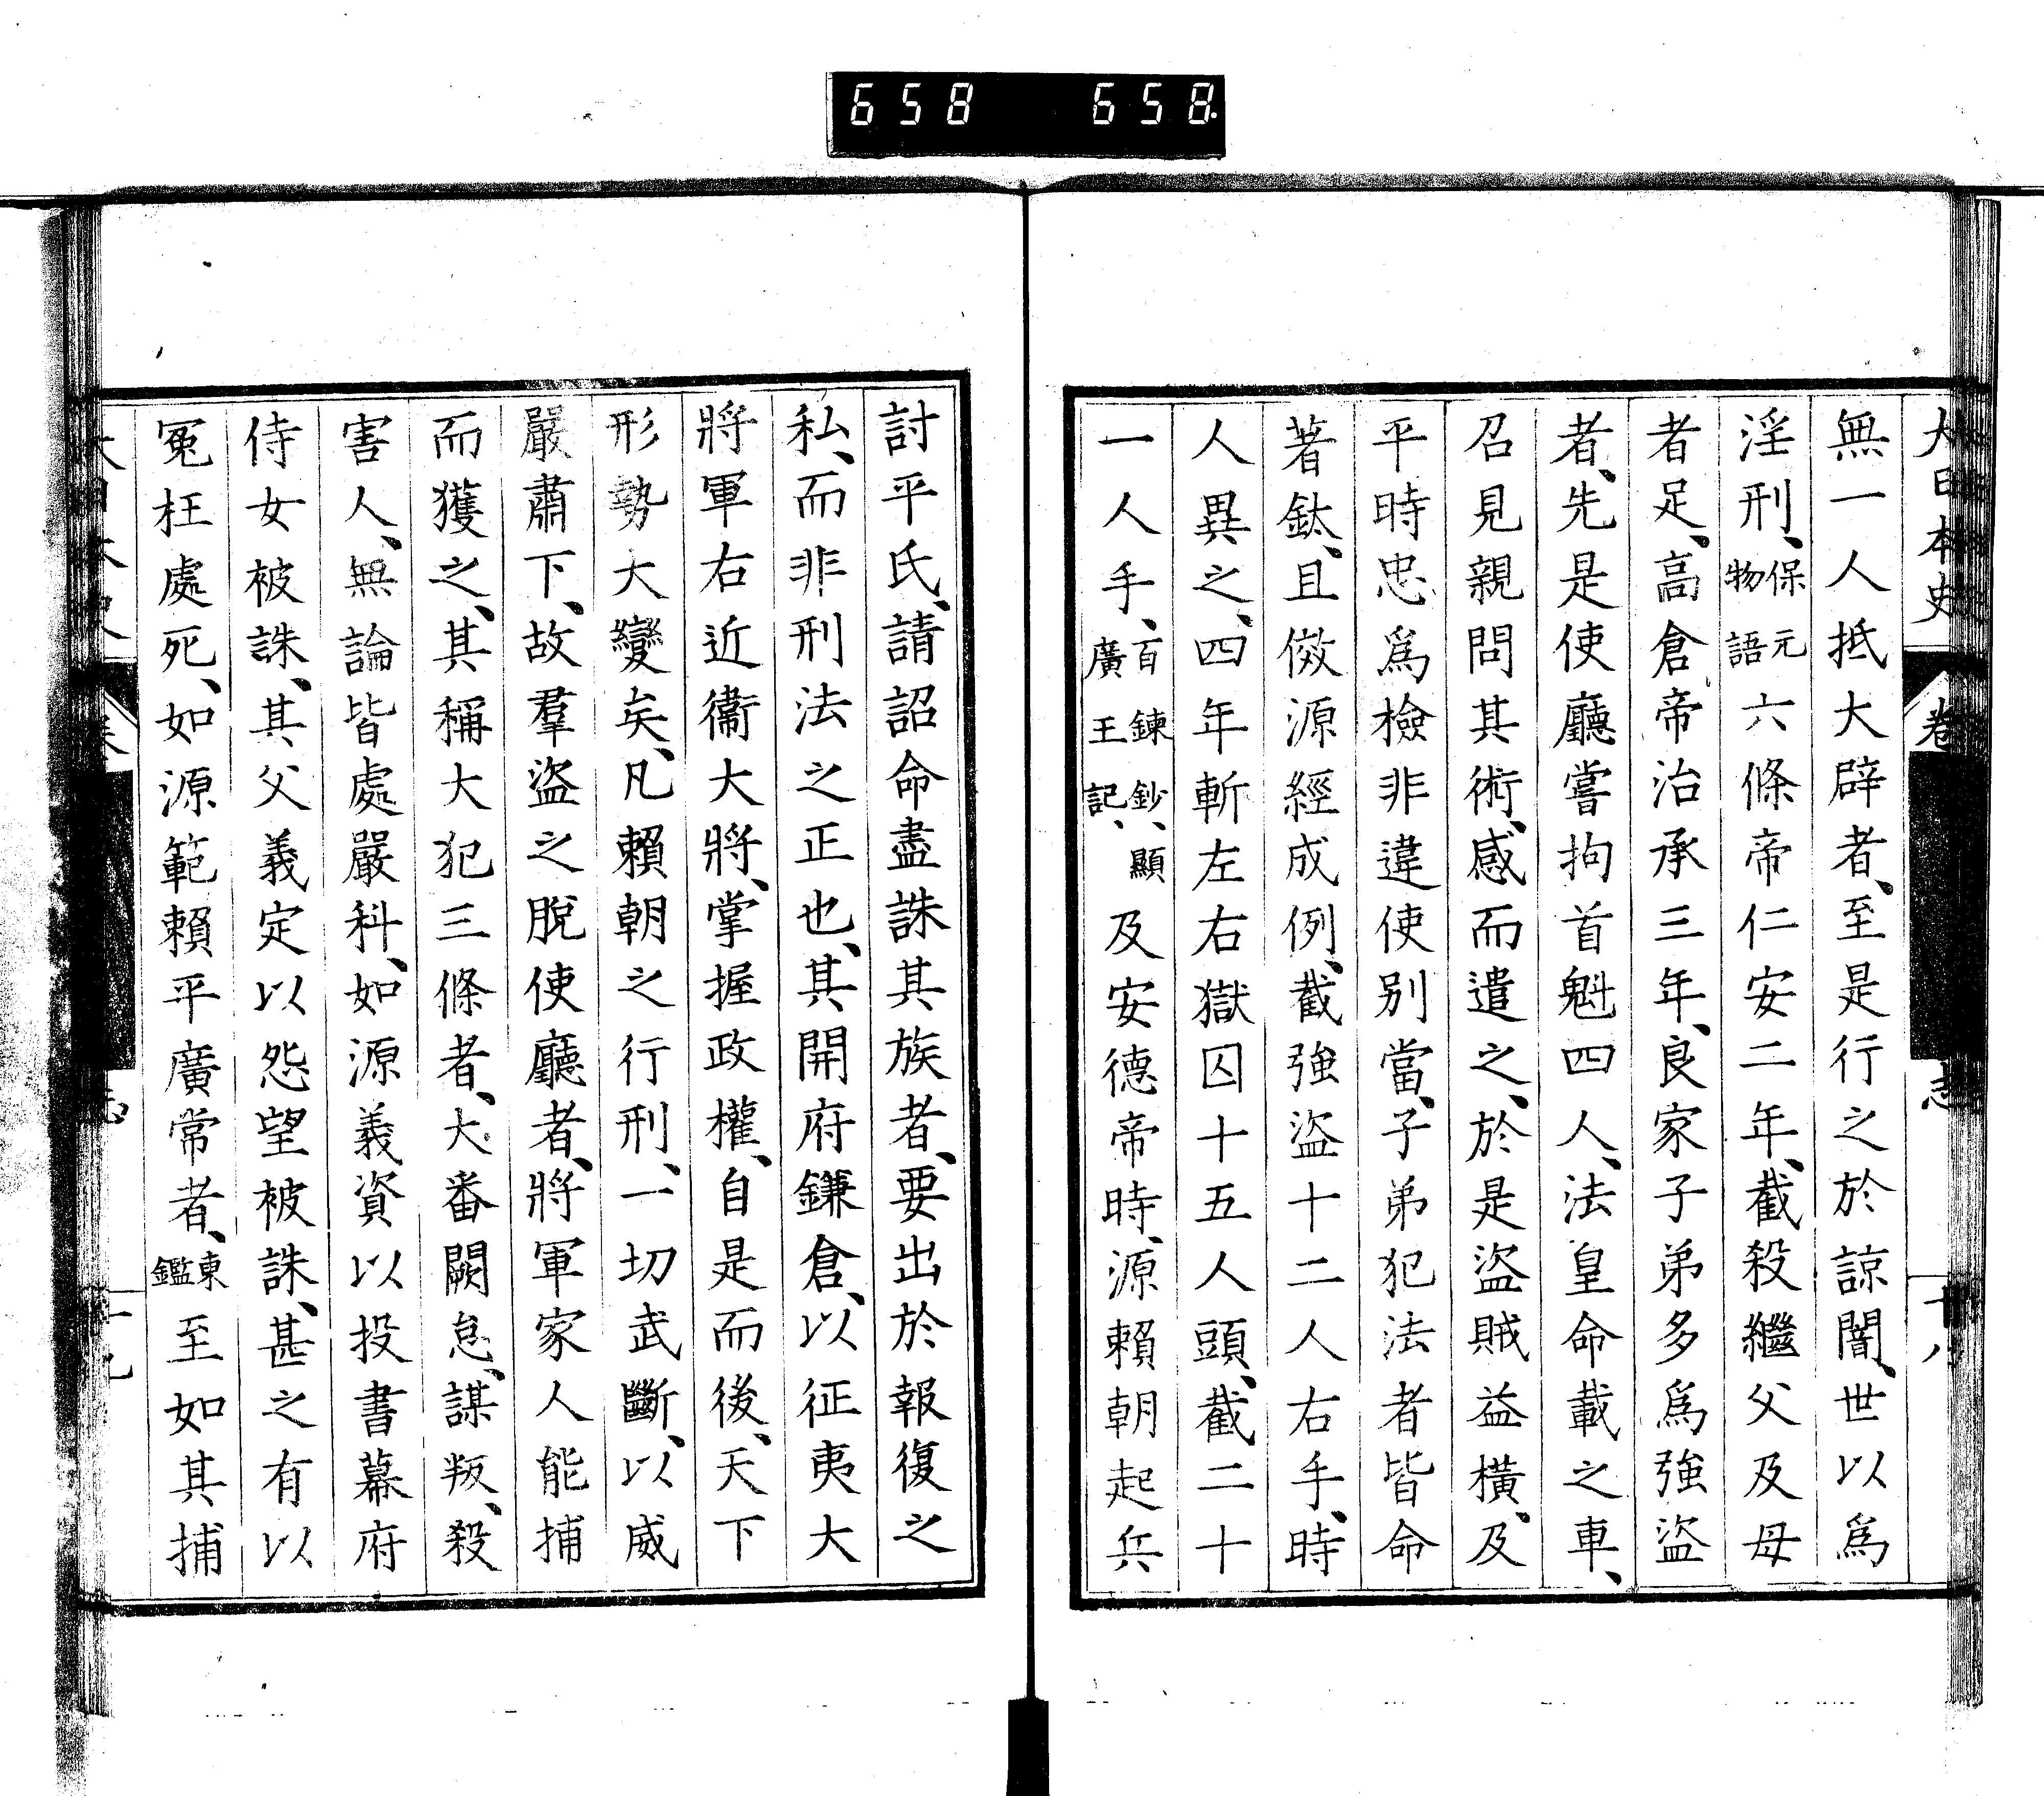 658 658
大日本史 卷 志 十八
無一人抵大辟者、至是行之於諒闇、世以爲
淫刑、保元物語六條帝仁安二年、截殺繼父及母
者足、高倉帝治承三年、良家子弟多爲強盜
者、先是使廳嘗拘首魁四人、法皇命載之車、
召見親問其術、感而遣之、於是盜賊益橫、及
平時忠爲檢非違使別當、子弟犯法者皆命
著釱、且倣源經成例、截強盜十二人右手、時
人異之、四年斬左右獄囚十五人頭、截二十
一人手、百鍊鈔、顯廣王記、及安德帝時、源賴朝起兵
討平氏、請詔命盡誅其族者、要出於報復之
私、而非刑法之正也、其開府鎌倉、以征夷大
將軍右近衞大將、掌握政權、自是而後、天下
形勢大變矣、凡賴朝之行刑、一切武斷、以威
嚴肅下、故羣盜之脫使廳者、將軍家人能捕
而獲之、其稱大犯三條者、大番闕怠、謀叛、殺
害人、無論皆處嚴科、如源義資以投書幕府
侍女被誅、其父義定以怨望被誅、甚之有以
冤枉處死、如源範賴平廣常者、東鑑至如其捕